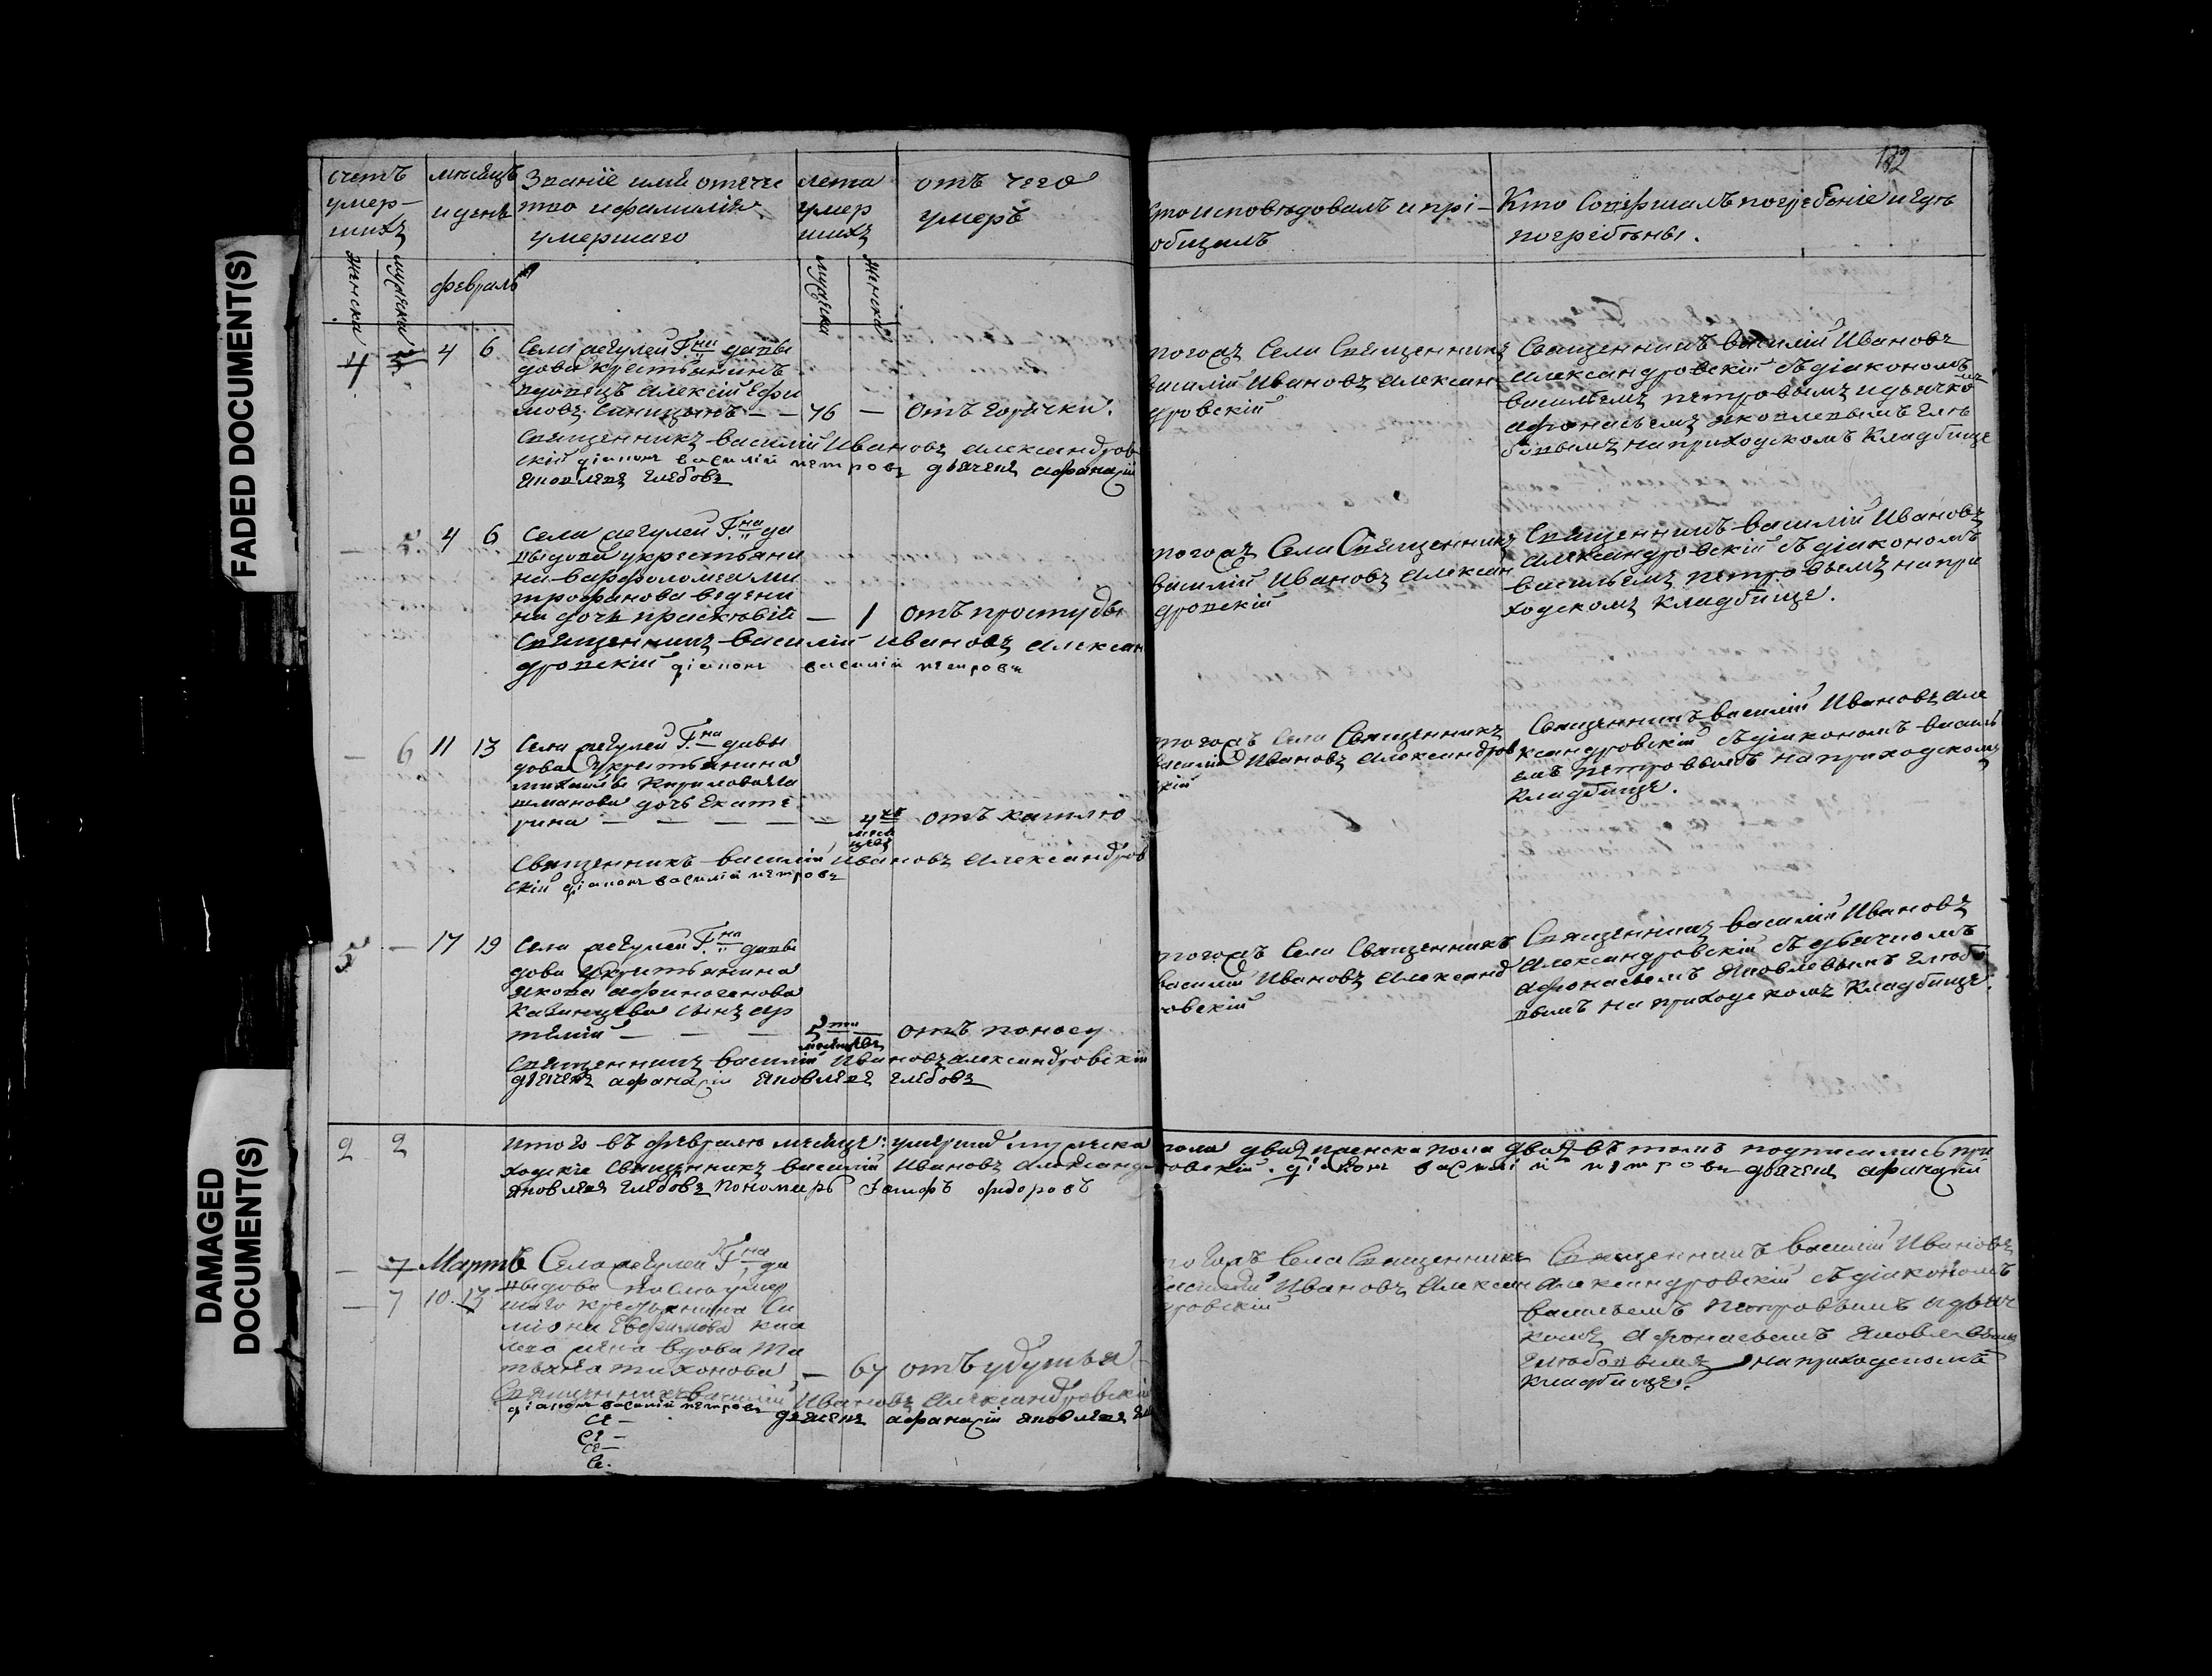 FADED DOCUMENT(S)
DAMAGED
DOCUMENT(S)
счетъ
умер-
шихъ
месяцъ
и день
Званïе имя отече
тво и фамилiя
умершаго
лета
умер
шихъ
отъ чего
умеръ
исповѣдовалъ и прi-
общалъ
Кто Совершалъ погребенiе и где
погребены.
женска
мужеска
февраль
мужеска
женска
4
4 6
Села Гна давы
дова крестьянинъ
вдовецъ Алексiй Ефи
мовъ — — 76 — отъ горячки.
Священникъ Василiй Ивановъ Александров
скiй дiаконъ василiй петровъ дьячекъ афанасiй
Яковлевъ Глебовъ
тогожъ Села Священникъ
Василiй Ивановъ Алексан
дровскiй
Священникъ Василiй Ивановъ
Александровскiй съ дiакономъ
Васильемъ петровымъ и дьячко
афонасьемъ яковлевымъ глѣ
бовымъ на приходскомъ Кладбище
— 4 6
Села Гна да
выдова у крестьяни
на Варфоломея ми
трофанова
на дочь — 1 отъ простуды
Священникъ Василiй Ивановъ Алексан
дровскiй дiаконъ василiй петровъ
тогожъ Села Священникъ
Василiй Ивановъ Алексан
дровскiй
Священникъ Василiй Ивановъ
Александровскiй съ дiакономъ
Васильемъ петровымъ на при
ходскомъ кладбище.
— 6 11 13
Села Гна давы
дова у крестьянина
михаилы Кирилова
дочь Екате
рина — — — — — отъ кашлю
Священникъ Василiй Ивановъ Александров
скiй дiаконъ василiй петровъ
тогожъ Села Священникъ
Василiй Ивановъ Александров
скiй
Священникъ Василiй Ивановъ Але
ксандровскiй съ дiакономъ Василь
емъ петровымъ на приходскомъ
Кладбище.
5 — 17 19
Села Гна давы
дова у крестьянина
Якова афиногенова
сынъ ар
темiй — — — 5ти — отъ поносу
месяцевъ
Священникъ Василiй Ивановъ Александровскiй
дьячекъ афанасiй Яковлевъ глебовъ
тогожъ Села Священникъ
Василiй Ивановъ Александ
ровскiй
Священникъ Василiй Ивановъ
Александровскiй съ дьячкомъ
афонасьемъ Яковлевымъ Глѣбо
вымъ на приходскомъ Кладбище.
2 2 итого въ февралѣ месяце умерши мужеска пола два женска пола два въ томъ подписались при
ходскiе Священникъ Василiй Ивановъ Александровскiй. дiаконъ василiй петровъ дьячекъ афанасiй
Яковлевъ Глебовъ Пономарь федоровъ
— 7 Мартъ
— 7 10 13
Села Гна да
выдова после умер
шаго крестьянина Си
мiона
жена вдова Та
тьяна тихонова — 67 отъ удушья
Священникъ Василiй Ивановъ Александровскiй
дiаконъ василiй петровъ дьячекъ афанасiй Яковлевъ
тогожъ Села Священникъ
Василiй Ивановъ Алексан
дровскiй
Священникъ Василiй Ивановъ
Александровскiй съ дiакономъ
Васильемъ Петровымъ и дьяч
комъ Афонасьемъ Яковлевымъ
Глѣбовымъ на приходскомъ
кладбище.